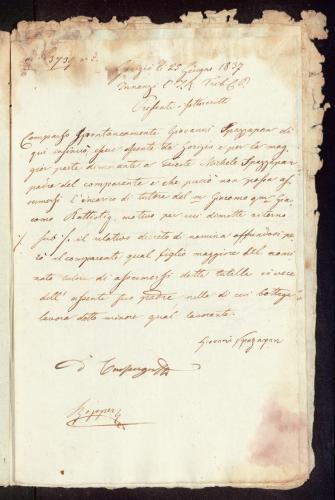 3739
Gorizia li 25 Giugno 1837
Innanzi l' I. R. Trib. C. P.
Presenti - sottoscritti
Comparso spontaneamente Giovanni Spazzapan di
qui essere assente da Gorizia e per la mag-
gior parte dimorante a Trieste Michele Spazzapan
padre del comparente e che perciò non possa as-
sumersi l'incarico di tutore del m. Giacomo qm Gia-
como Battistig, motivo per cui dimette ritorno
il relativo decreto di nomina offrendosi pe-
rò il comparente qual figlio maggiore del nomi-
nato tutore di assumersi detta tutella invece
dell' assente suo padre nella di cui bottega
lavora detto minore qual lavorante.
Giovanni Spazzapan